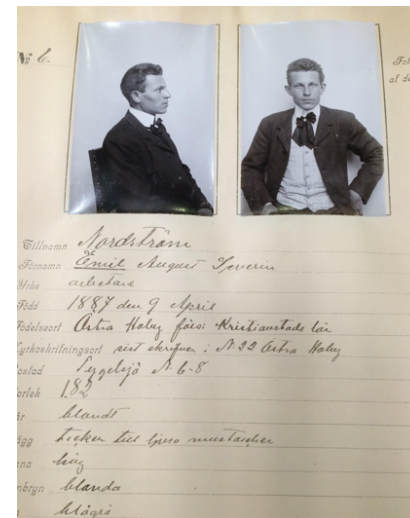 № 6.
af
Tillnamn Nordström
Förnamn Emil August Severin
Yrke arbetare
Född 1887 den 9 April
Födelseort Östra Hoby förs: Kristianstads län
Kyrkoskrifningsort sist skrifven i N:22 Östra Hoby
Bostad N. 6-8
orlek 182
år blandt
ägg till ljusa mustascher
nna hög
nbryn blanda
blågrå